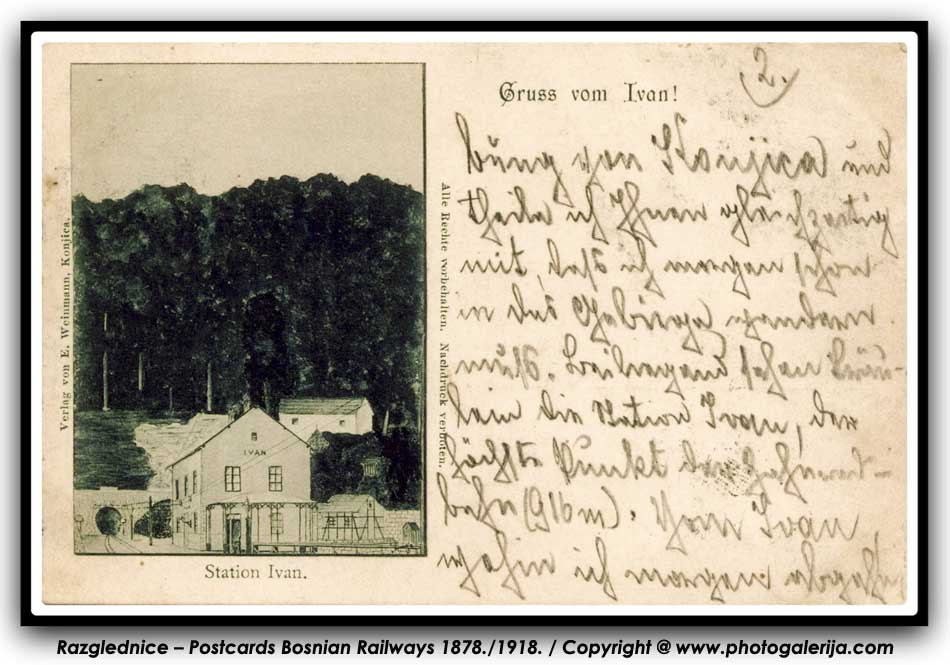 Gruss vom Ivan!
2.
bung von Konjica und
theile ich Ihnen gleichzeitig
mit, daß ich morgen schon
in das Gebirge
muß. Beiliegend sehen Fräu-
lein die Station Ivan, der
höchste Punkt der Zahnrad-
bahn (916 m). Von Ivan,
wohin ich morgen abgehe,
Verlag von E. Weinmann, Konjica.
Alle Rechte vorbehalten. Nachdruck verboten.
IVAN
Station Ivan.
Razglednice – Postcards Bosnian Railways 1878./1918. / Copyright @ www.photogalerija.com